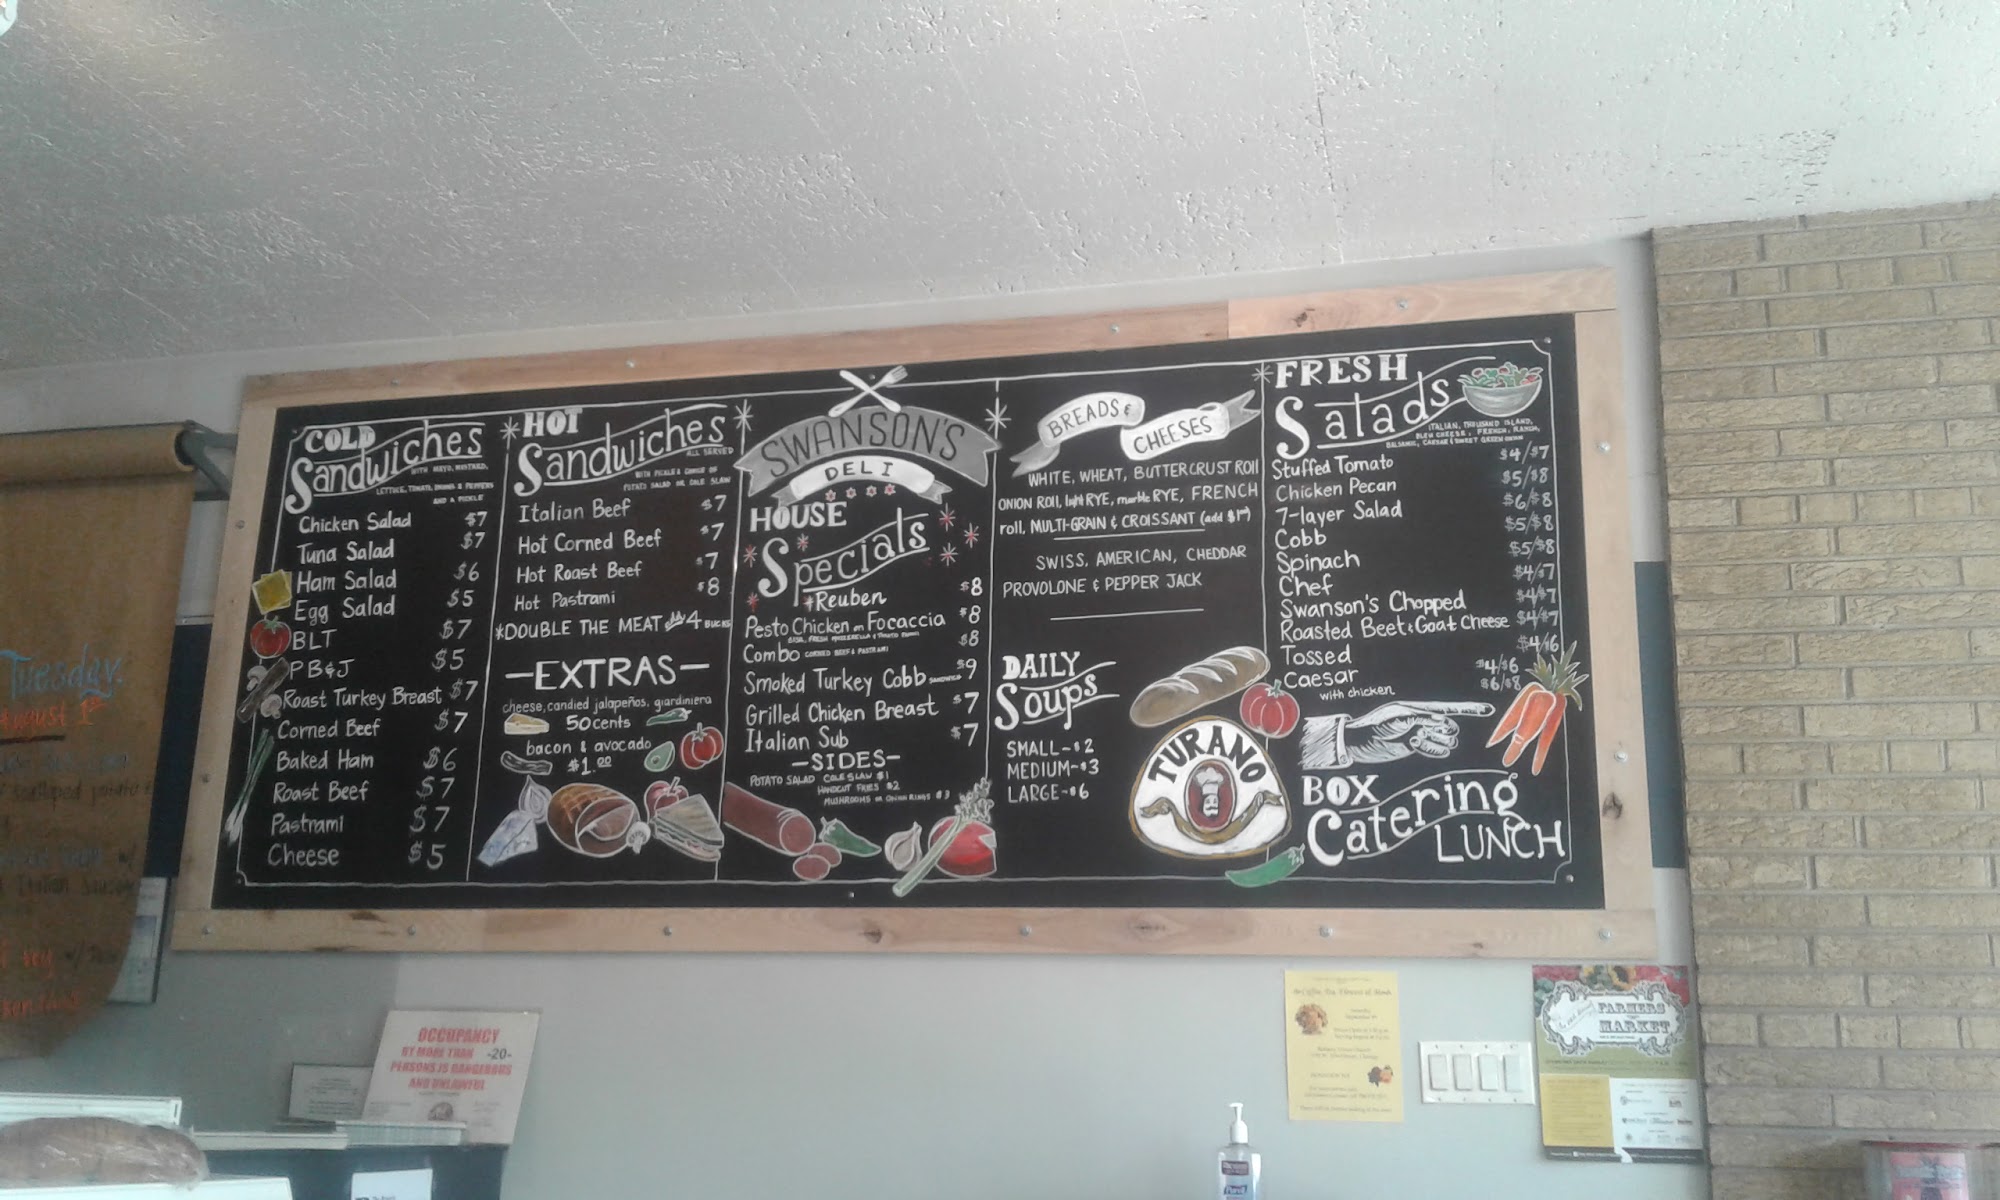 COLD
Sandwiches
WITH MAYO, MUSTARD,
LETTUCE, TOMATO, ONIONS & PEPPERS
AND A PICKLE
Chicken Salad $7
Tuna Salad $7
Ham Salad $6
Egg Salad $5
BLT $7
PB&J $5
Roast Turkey Breast $7
Corned Beef $7
Baked Ham $6
Roast Beef $7
Pastrami $7
Cheese $5
HOT
Sandwiches
ALL SERVED
WITH PICKLE & CHOICE OF
POTATO SALAD OR COLE SLAW
Italian Beef $7
Hot Corned Beef $7
Hot Roast Beef $7
Hot Pastrami $8
*DOUBLE THE MEAT 4 BUCKS
-EXTRAS-
cheese, candied jalapeños, giardiniera
50 cents
bacon & avocado
$1.00
SWANSON'S
DELI
HOUSE
Specials
Reuben $8
Pesto Chicken on Focaccia $8
BASIL, FRESH MOZZARELLA & TOMATO
Combo CORNED BEEF & PASTRAMI $8
Smoked Turkey Cobb SANDWICH $9
Grilled Chicken Breast $7
Italian Sub $7
-SIDES-
POTATO SALAD COLE SLAW $1
HANDCUT FRIES $2
MUSHROOMS OR ONION RINGS $3
BREADS &
CHEESES
WHITE, WHEAT, BUTTERCRUST ROLL
ONION ROLL, light RYE, marble RYE, FRENCH
roll, MULTI-GRAIN & CROISSANT (add $1)
SWISS, AMERICAN, CHEDDAR
PROVOLONE & PEPPER JACK
DAILY
Soups
SMALL-$2
MEDIUM-$3
LARGE-$6
TURANO
FRESH
Salads
ITALIAN, THOUSAND ISLAND,
BLEU CHEESE, FRENCH, RANCH,
BALSAMIC, CAESAR & SWEET GREEN ONION
Stuffed Tomato $4/$7
Chicken Pecan $5/$8
7-layer Salad $6/$8
Cobb $5/$8
Spinach $5/$8
Chef $4/$7
Swanson's Chopped $4/$7
Roasted Beet & Goat Cheese $4/$7
Tossed $4/$6
Caesar $4/$6
with chicken $6/$8
BOX
Catering
LUNCH
Tuesday.
August 1st
OCCUPANCY
BY MORE THAN -20-
PERSONS IS DANGEROUS
AND UNLAWFUL
FARMERS
MARKET